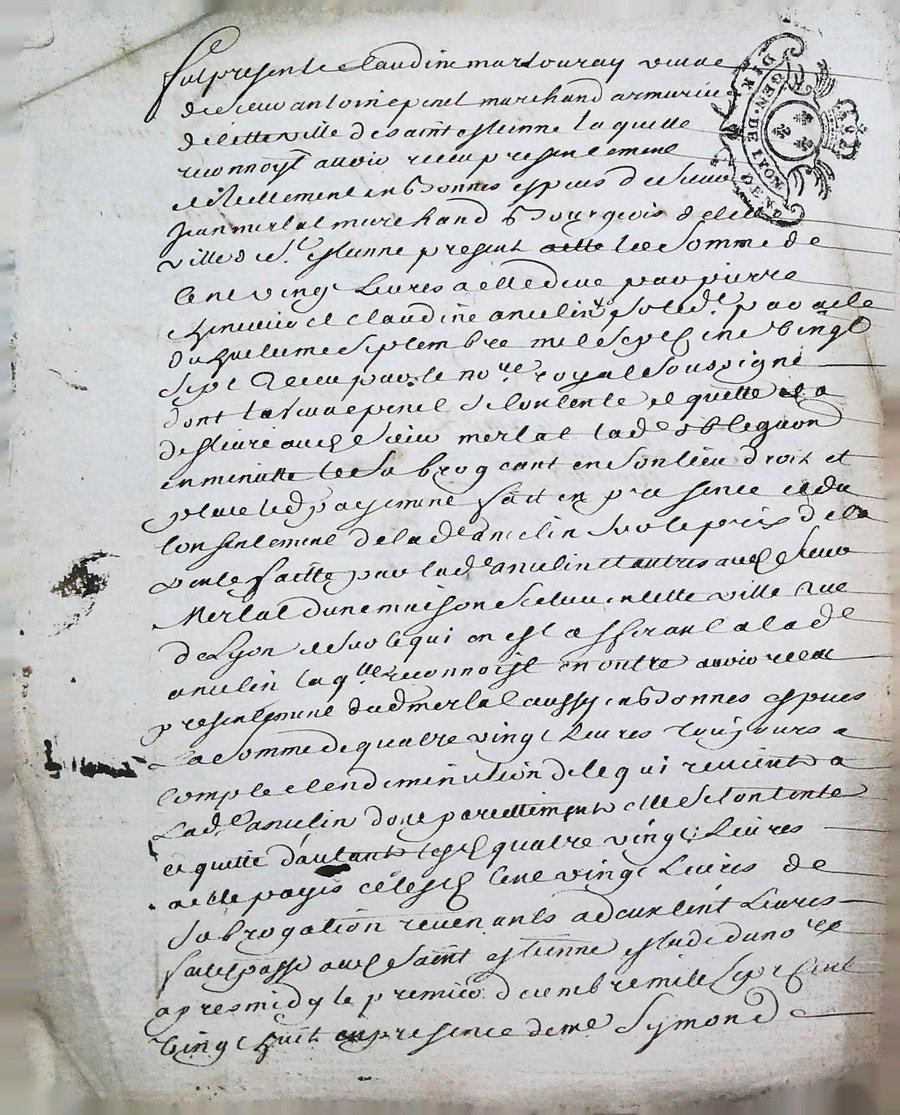 fut presente Claudine martouray veuve
de sieur antoine penel marchand armurier
de cette ville de saint estienne laquelle
reconnoist avoir receu presentement
et reellement en bonnes espices de sieur
Jean merlat marchand bourgeois de cette
ville de St estienne present la somme de
cent vingt livres a elle deue par pierre
et Claudine ancelin par acte
du septembre mil sept cent vingt
sept receu par le nore royal soussigné
dont lad veuve penel se contente et quette et a
aud sieur merlat lade oblegaon
en minutte le subrogeant en son lieu droit et
place led payement fait en presence et du
consentement de lade ancelin sur le prix de la
vente faitte par lade ancelin et autres aud sieur
Merlat d'une maison scetuee en cette ville rue
de Lyon et sur ce qui en est afferant a lade
ancelin laqlle reconnoist en outre avoir receu
presentement dud merlat aussy en bonnes espices
La somme de quatre vingt livres toujours a
compte et en deminution de ce qui revient a
Lade ancelin dont pareillement elle se contente
et quitte d'autant lesd quatre vingt livres
cent vingt livres de
subrogation revenants a deux cent livres
fait et passé aud saint estienne estude du nore
apres midy le premier decembre mille sept cent
vingt huit en presence de me Symond
GEN. DE LYON